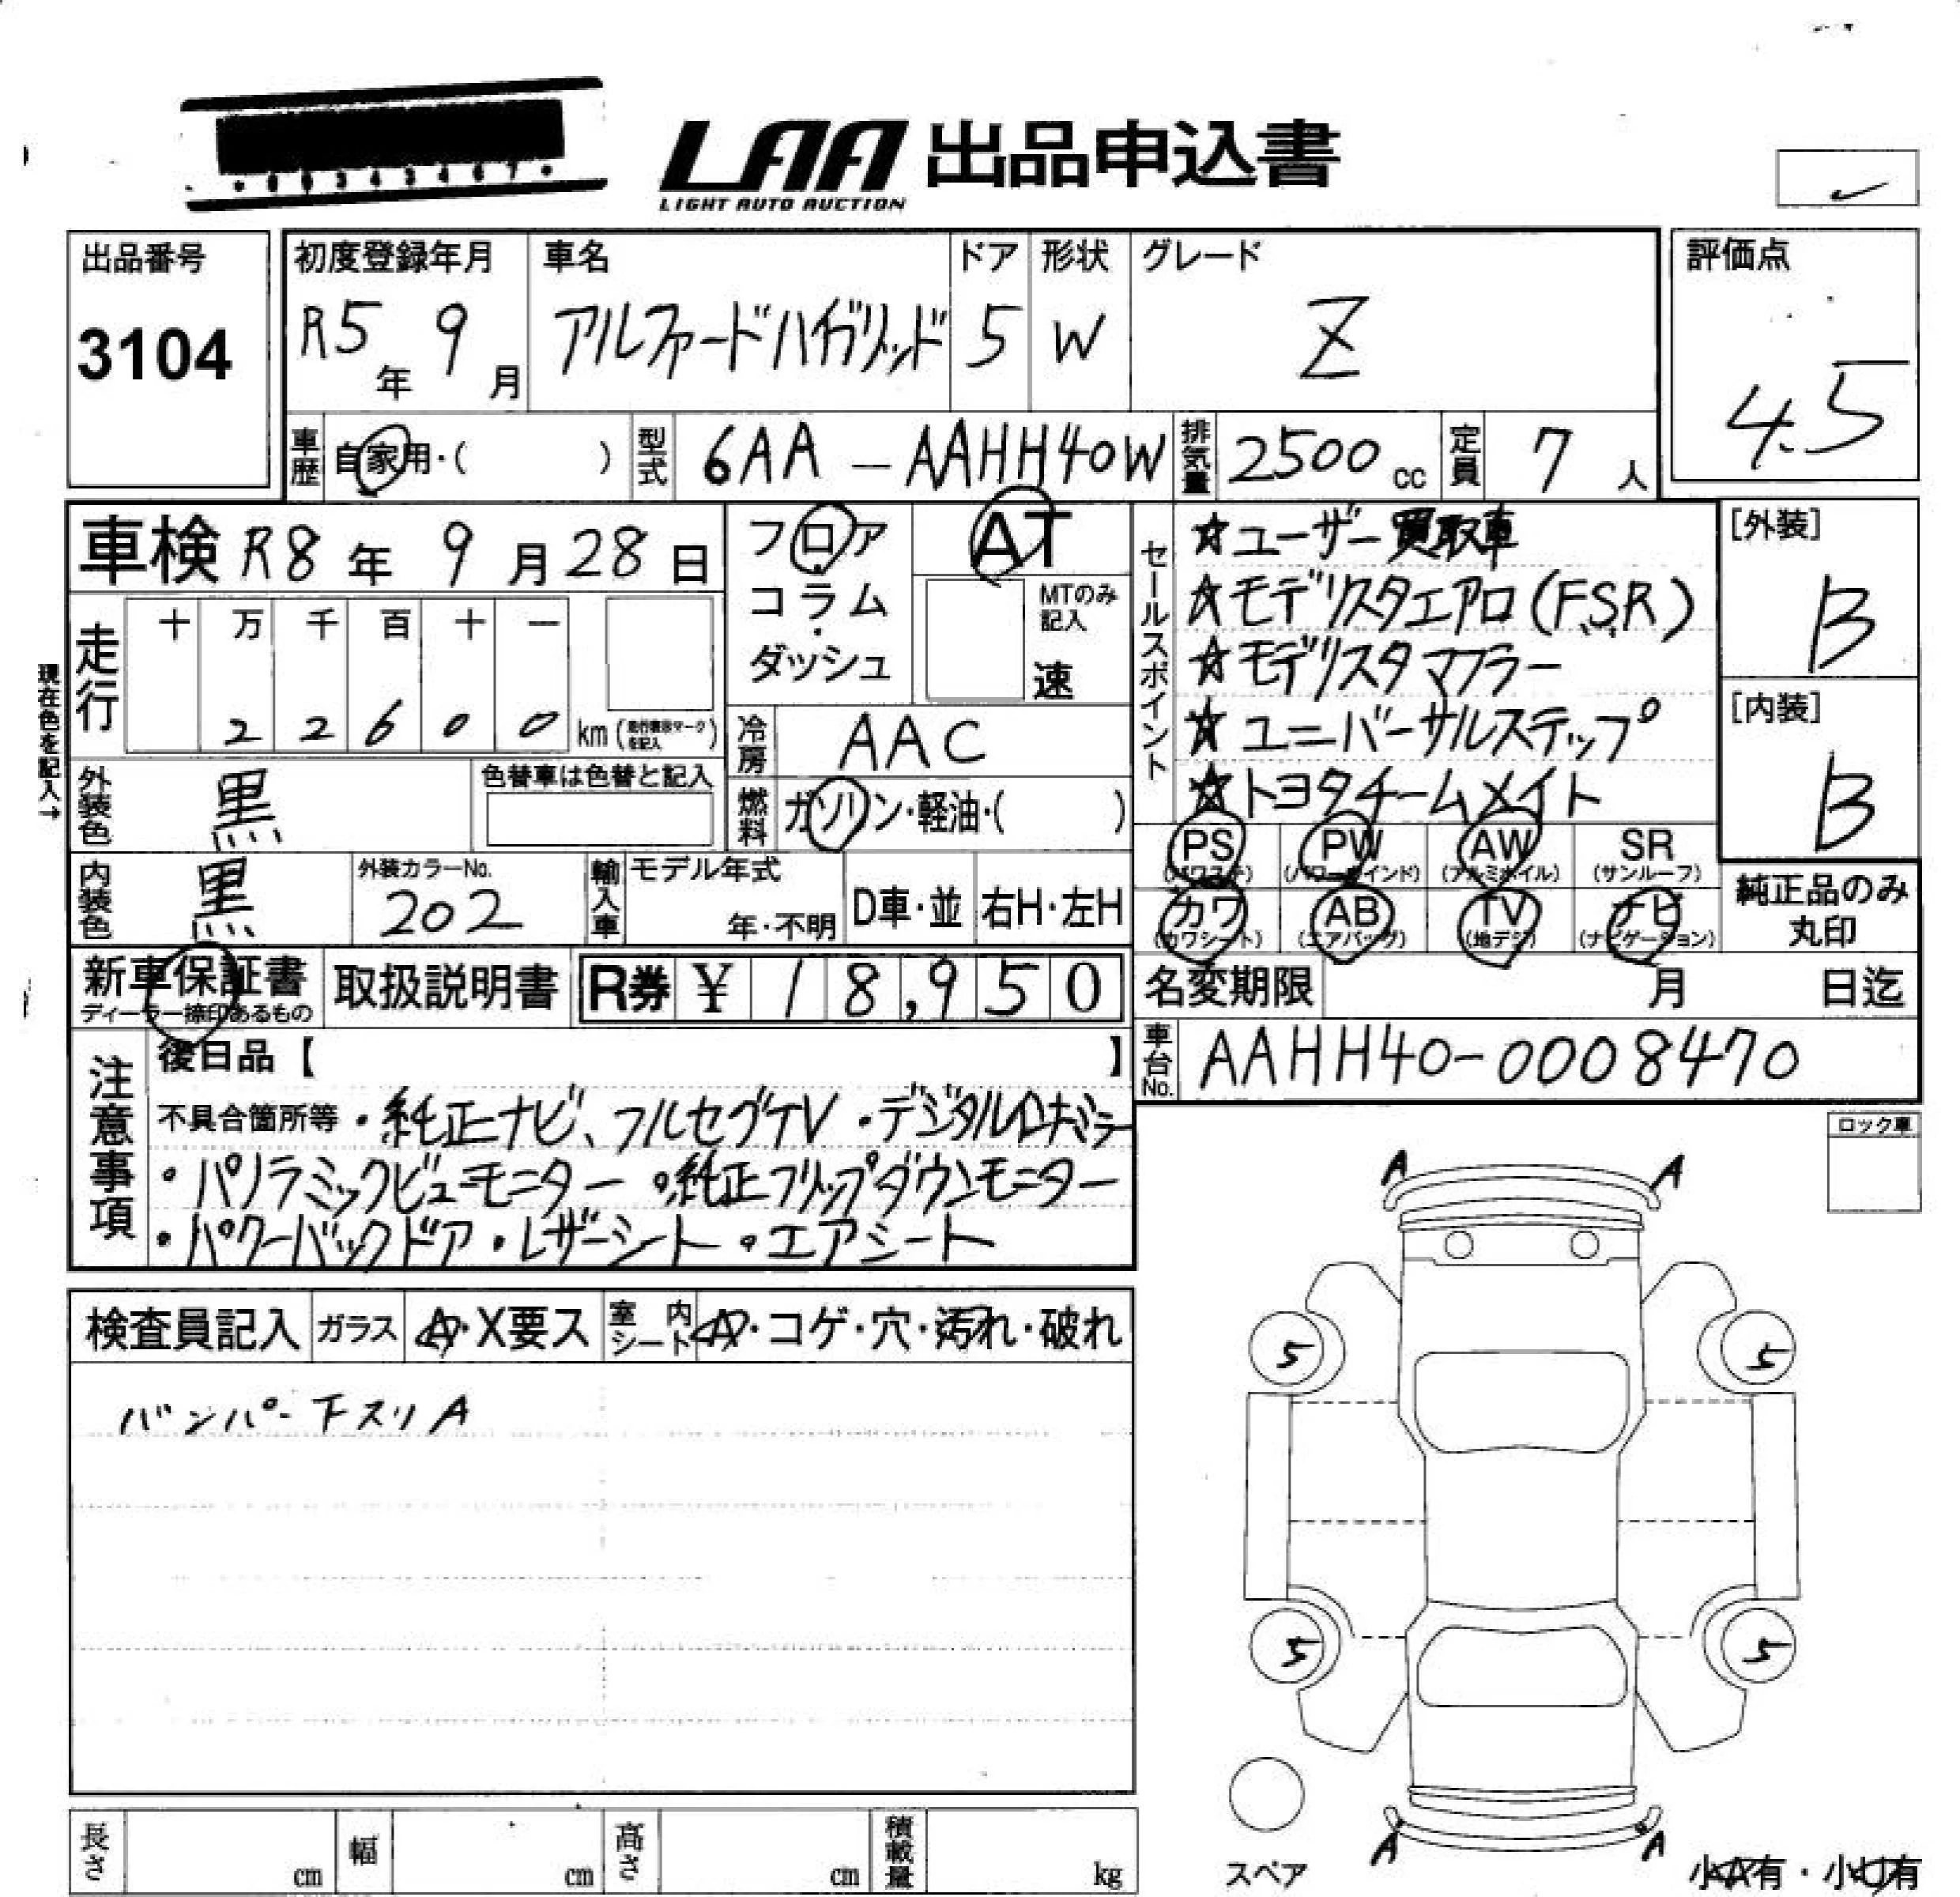 LAA 出品申込書
LIGHT AUTO AUCTION
出品番号
3104
初度登録年月
R5年 9月
車名
アルファードハイブリッド
ドア
5
形状
W
グレード
Z
評価点
4.5
車歴 自家用・( )
型式 6AA - AAHH40W
排気量 2500 cc
定員 7人
車検 R8年 9月28日
フロア・コラム・ダッシュ
AT
MTのみ記入
速
セールスポイント
☆ユーザー買取車
☆モデリスタエアロ(F.S.R)
☆モデリスタマフラー
☆ユニバーサルステップ
☆トヨタチームメイト
[外装]
B
[内装]
B
現在色を記入→
走行
十 万 千 百 十 一
2 2 6 0 0 km
冷房 AAC
燃料 ガソリン・軽油・( )
外装色 黒
色替車は色替と記入
内装色 黒
外装カラーNo.
202
輸入車
モデル年式
年・不明
D車・並
右H・左H
PS (パワステ)
PW (パワーウインド)
AW (アルミホイル)
SR (サンルーフ)
カワ (カワシート)
AB (エアバッグ)
TV (地デジ)
ナビ (ナビゲーション)
純正品のみ丸印
新車保証書
ディーラー捺印あるもの
取扱説明書
R券 ¥ 18,950
名変期限 月 日迄
車台No. AAHH40-0008470
注意事項
後日品【 】
不具合箇所等 ・純正ナビ、フルセグTV ・デジタルインナーミラー
・パノラミックビューモニター ・純正フリップダウンモニター
・パワーバックドア ・レザーシート ・エアシート
ロック車
検査員記入
ガラス A・X要ス
室内シート A・コゲ・穴・汚れ・破れ
バンパー下スリA
A A
5 5
5 5
A A
スペア
小A有・小U有
長さ cm
幅 cm
高さ cm
積載量 kg